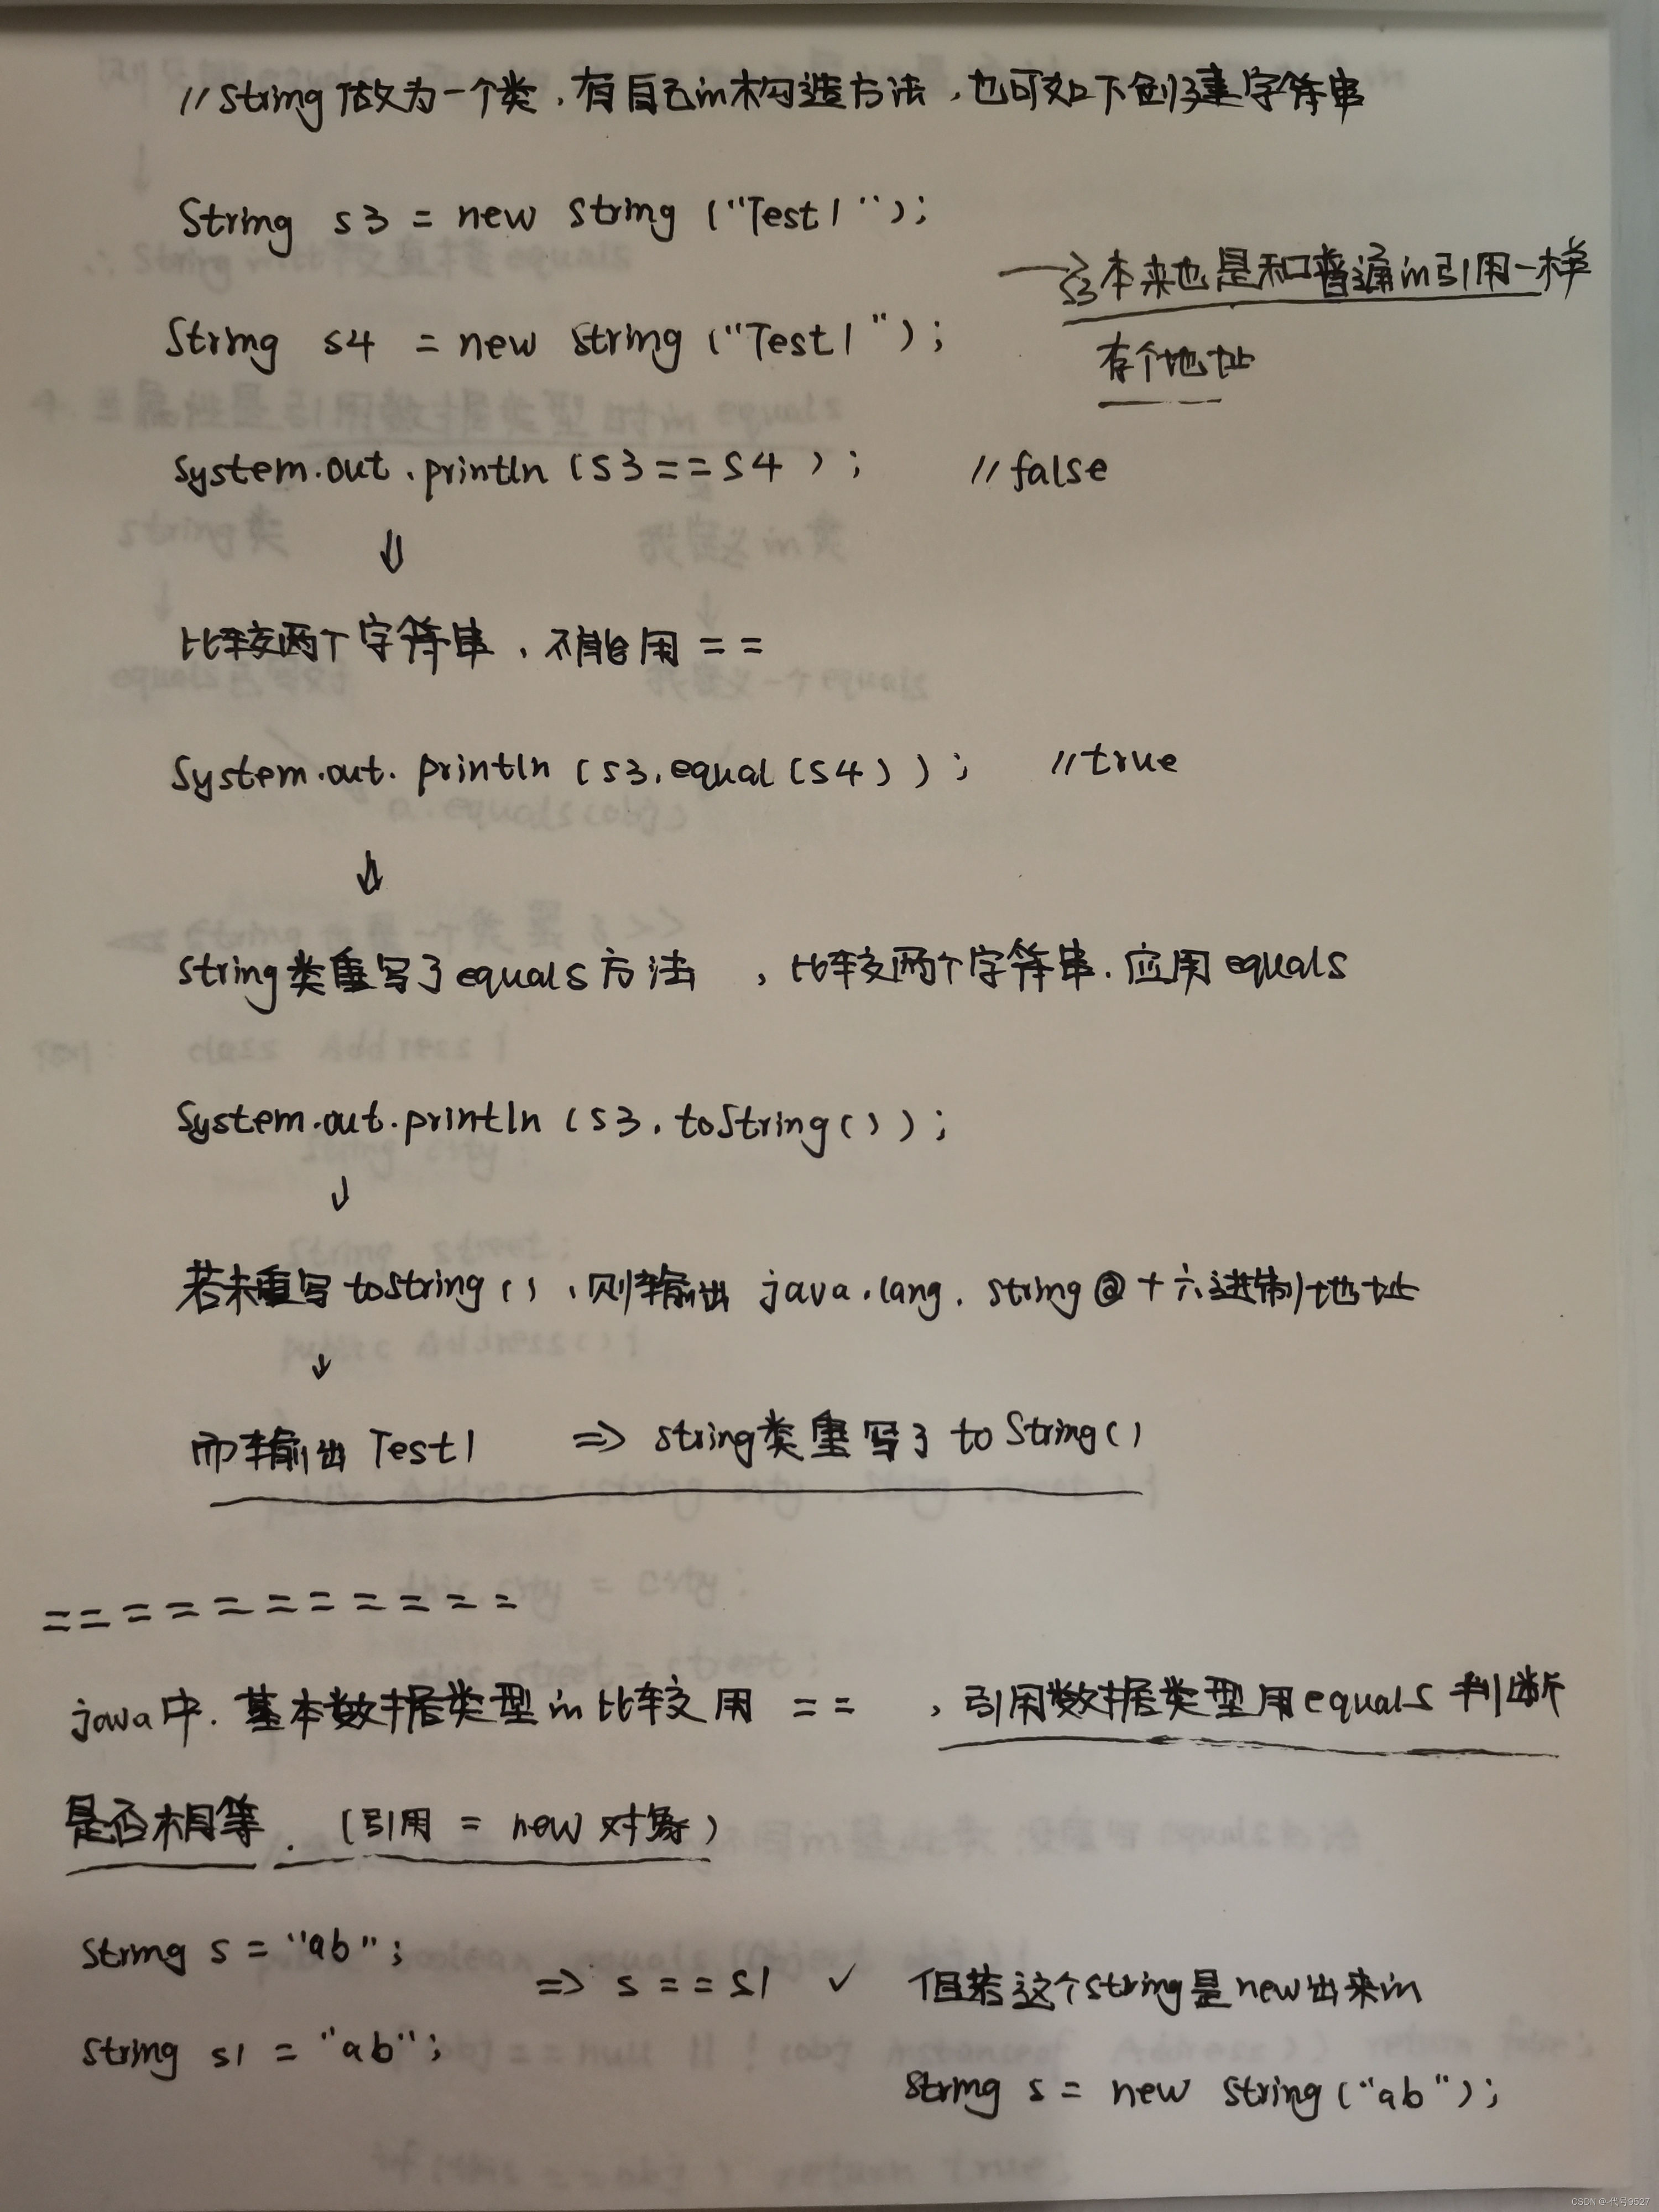 //String 做为一个类,有自己in构造方法,也可如下创建字符串
String s3 = new String ("Test1");
→ s3本来也是和普通in引用一样
String s4 = new String ("Test1");
存个地址
System.out.println (s3==s4); //false
⇓
比较两个字符串,不能用 ==
System.out.println (s3.equal(s4)); //true
⇓
String类重写了equals方法,比较两个字符串.应用equals
System.out.println (s3.toString());
↓
若未重写 toString(),则输出 java.lang.String@十六进制地址
↓
而输出 Test1 => String类重写了 toString()
== = = = = = = = = =
java中.基本数据类型in比较用 ==,引用数据类型用equals 判断
是否相等.(引用 = new 对象)
String s = "ab";
=> s == s1 ✓ 但若这个String是new出来in
String s1 = "ab";
String s = new String("ab");
CSDN @代号9527